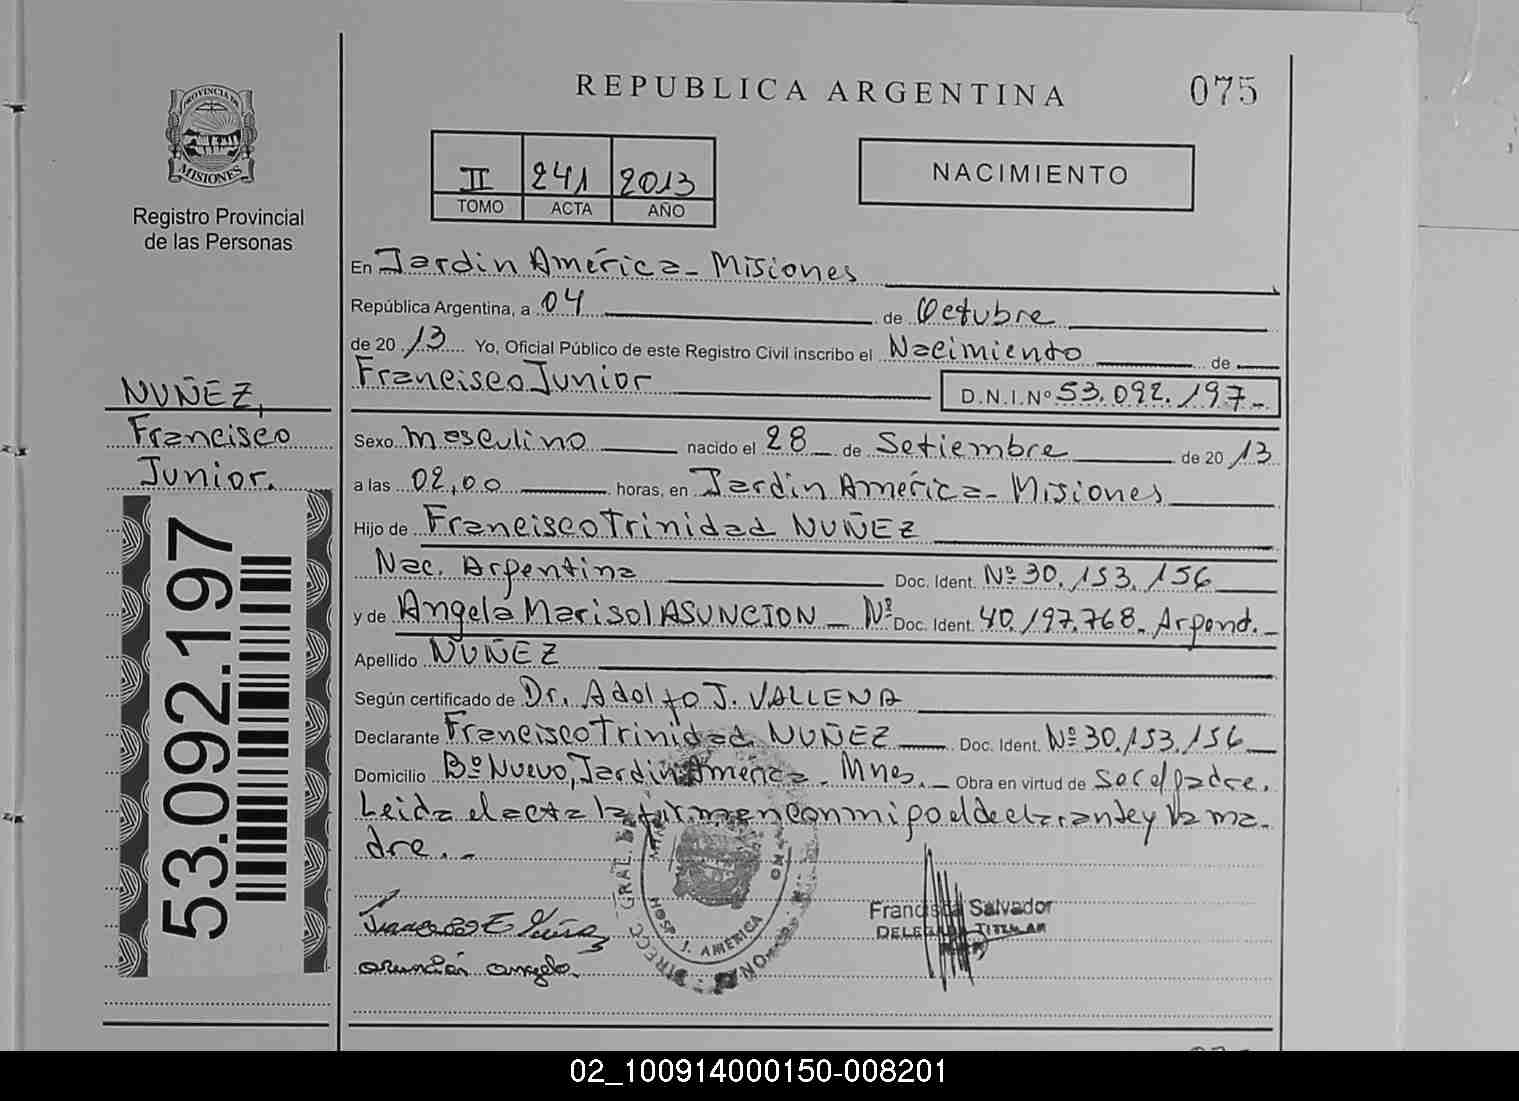 REPUBLICA ARGENTINA
075
PROVINCIA DE
MISIONES
Registro Provincial
de las Personas
II 241 2013
TOMO ACTA AÑO
NACIMIENTO
En Jardin América - Misiones
República Argentina, a 04 de Octubre
de 20 13 Yo, Oficial Público de este Registro Civil inscribo el Nacimiento de
Francisco Junior D.N.I.Nº 53.092.197-
NUÑEZ,
Francisco
Junior.
53.092.197
Sexo masculino nacido el 28 de Setiembre de 20 13
a las 02,00 horas, en Jardin América - Misiones
Hijo de Francisco Trinidad NUÑEZ
Nac. Argentina Doc. Ident. Nº 30.153.156
y de Angela Marisol ASUNCION - Nº Doc. Ident. 40.197.768- Argent.-
Apellido NUÑEZ
Según certificado de Dr. Adolfo J. VALLENA
Declarante Francisco Trinidad NUÑEZ Doc. Ident. Nº 30.153.156
Domicilio Bº Nuevo, Jardin America - Mnes. - Obra en virtud de ser el padre.
Leida el acta la firman conmigo el declarante y la ma-
dre.-
HOSP. J. AMERICA
Francisco Salvador
DELEGADO TITULAR
asunción angela.
02_100914000150-008201